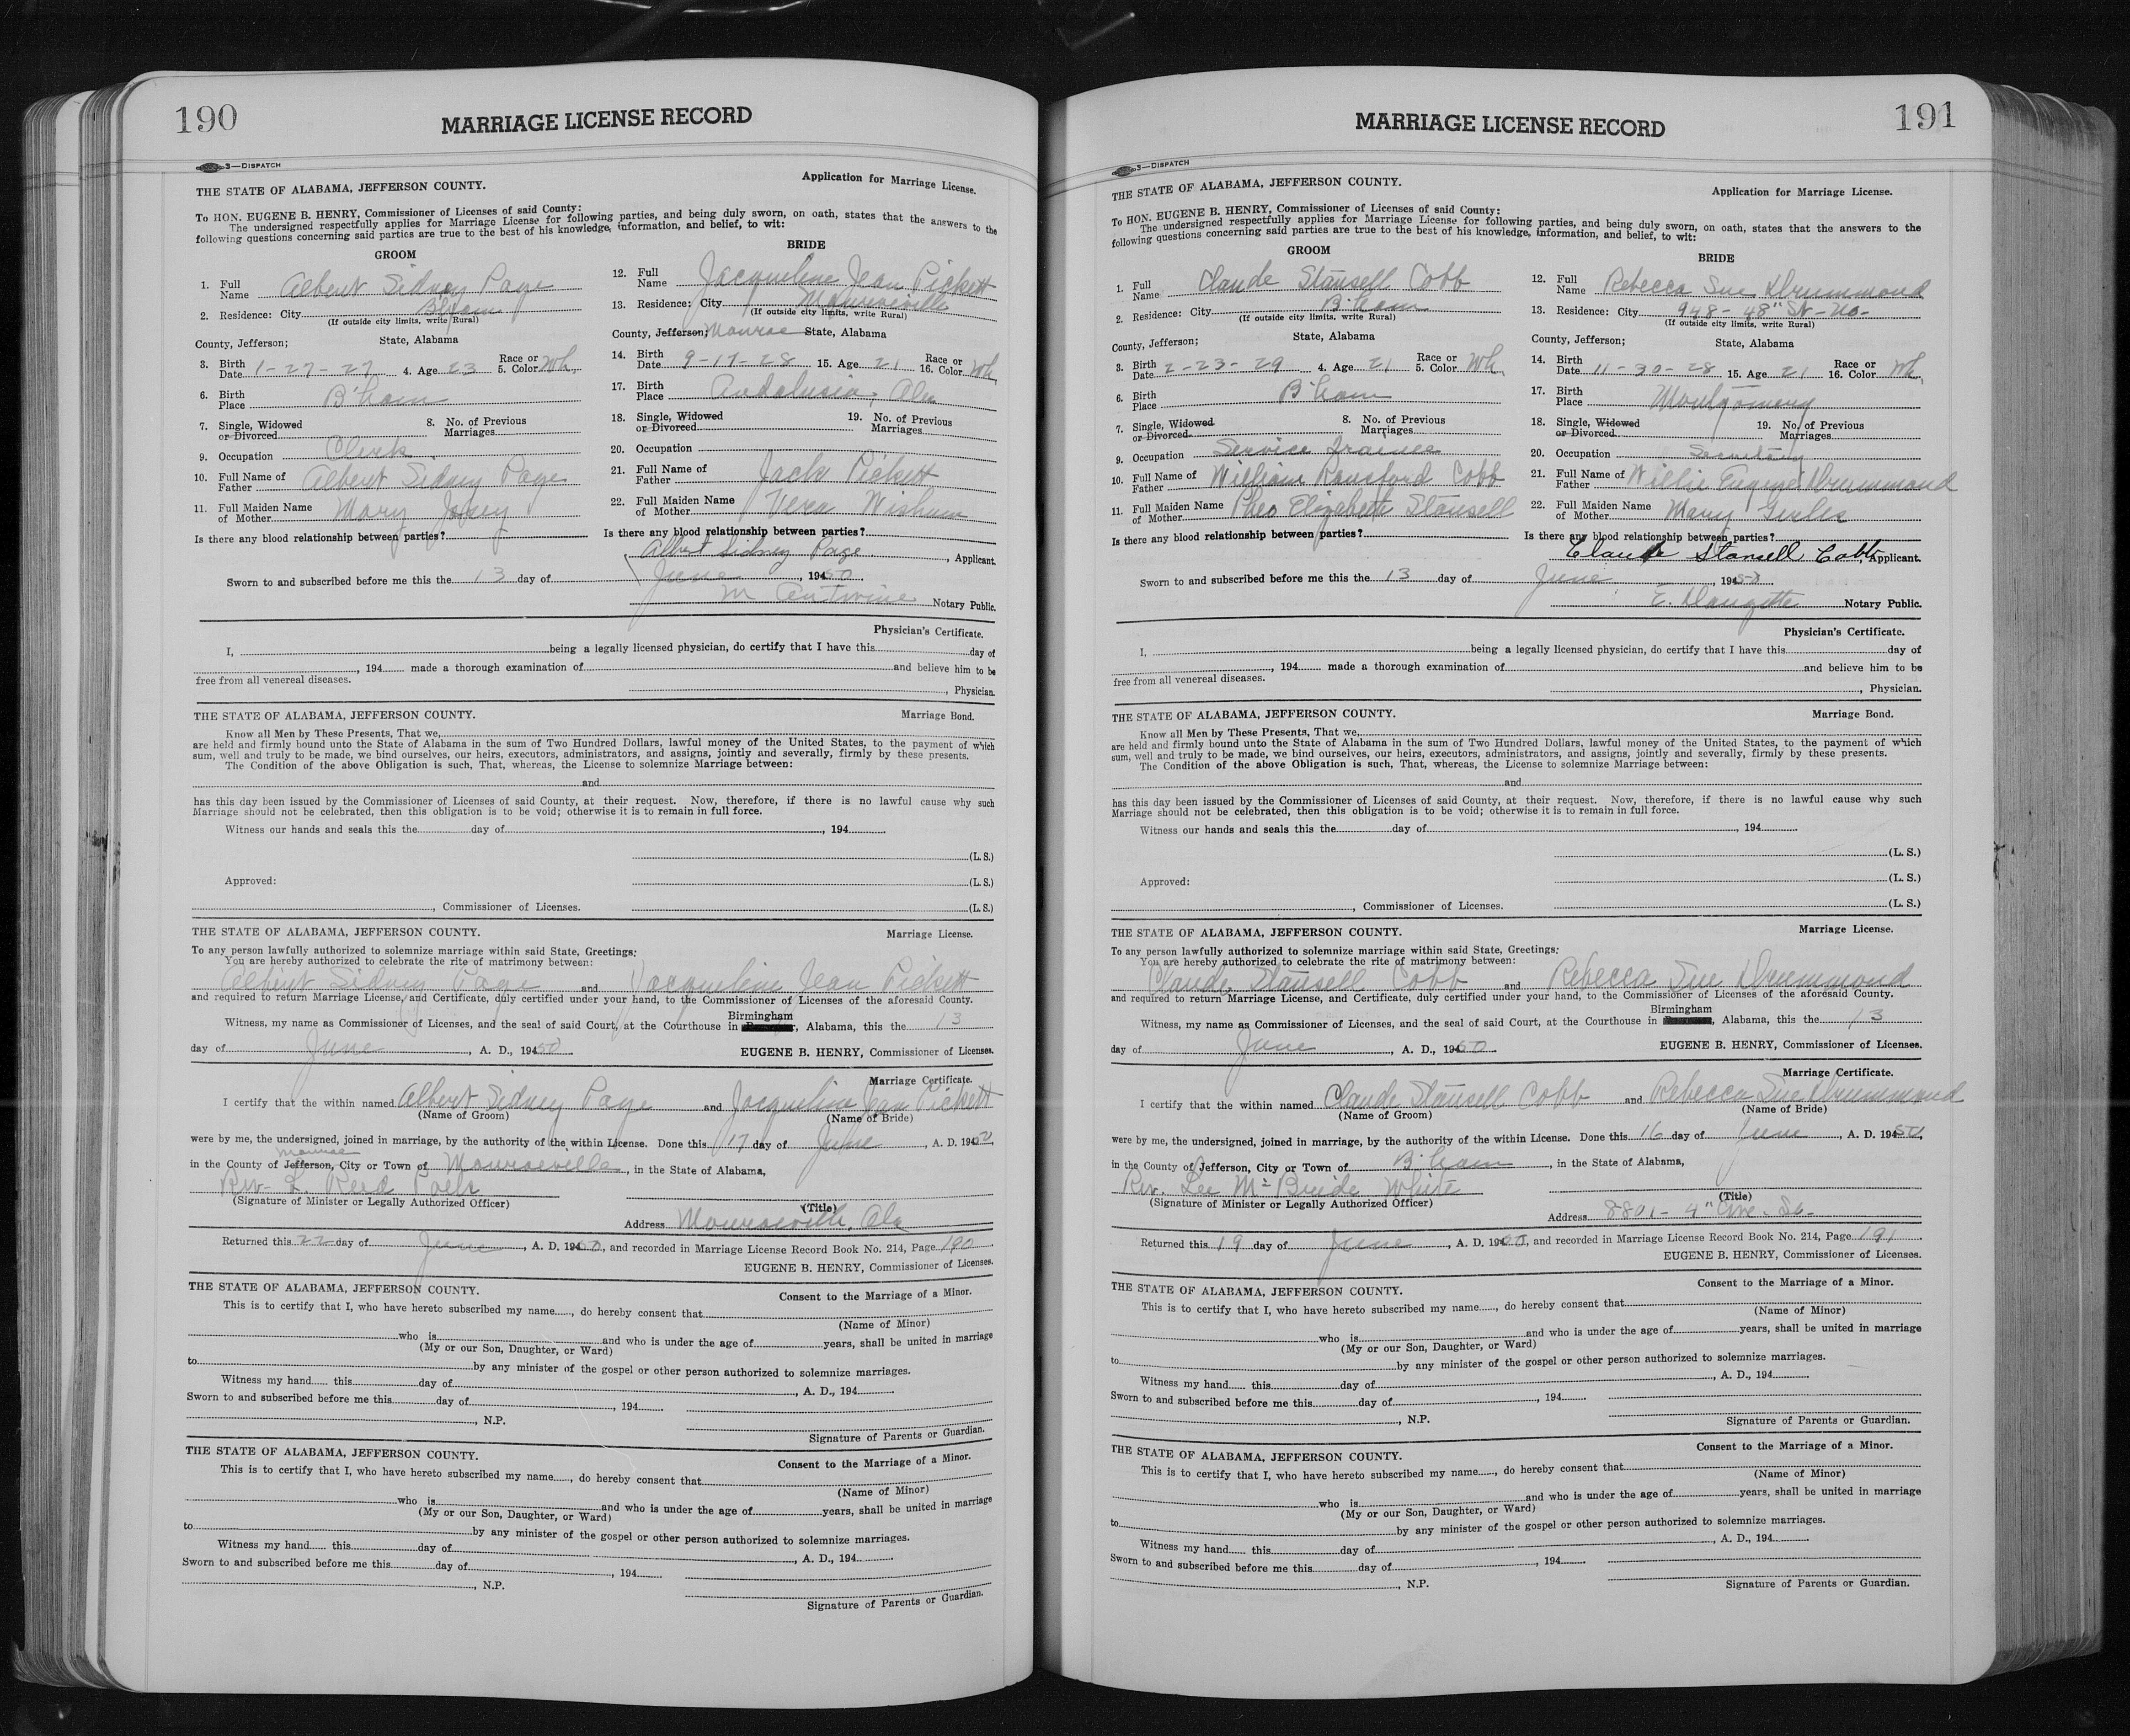 190
MARRIAGE LICENSE RECORD
3—DISPATCH
THE STATE OF ALABAMA, JEFFERSON COUNTY.
Application for Marriage License.
To HON. EUGENE B. HENRY, Commissioner of Licenses of said County:
The undersigned respectfully applies for Marriage License for following parties, and being duly sworn, on oath, states that the answers to the
following questions concerning said parties are true to the best of his knowledge, information, and belief, to wit:
GROOM
1. Full Name Albert Sidney Page
2. Residence: City B'ham
(If outside city limits, write Rural)
County, Jefferson; State, Alabama
3. Birth Date 1-27-27 4. Age 23 5. Race or Color Wh.
6. Birth Place B'ham
7. Single, Widowed or Divorced 8. No. of Previous Marriages
9. Occupation Clerk
10. Full Name of Father Albert Sidney Page
11. Full Maiden Name of Mother Mary
Is there any blood relationship between parties?
BRIDE
12. Full Name Jacqueline Jean Pickett
13. Residence: City Monroeville
(If outside city limits, write Rural)
County, Jefferson; Monroe State, Alabama
14. Birth Date 9-17-28 15. Age 21 16. Race or Color Wh.
17. Birth Place Andalusia, Ala
18. Single, Widowed or Divorced 19. No. of Previous Marriages
20. Occupation
21. Full Name of Father Jack Pickett
22. Full Maiden Name of Mother Vera Wishum
Is there any blood relationship between parties?
Albert Sidney Page, Applicant.
Sworn to and subscribed before me this the 13 day of June, 19450.
M Notary Public.
Physician's Certificate.
I, being a legally licensed physician, do certify that I have this day of
, 194 made a thorough examination of and believe him to be
free from all venereal diseases.
, Physician.
THE STATE OF ALABAMA, JEFFERSON COUNTY.
Marriage Bond.
Know all Men by These Presents, That we,
are held and firmly bound unto the State of Alabama in the sum of Two Hundred Dollars, lawful money of the United States, to the payment of which
sum, well and truly to be made, we bind ourselves, our heirs, executors, administrators, and assigns, jointly and severally, firmly by these presents.
The Condition of the above Obligation is such, That, whereas, the License to solemnize Marriage between:
and
has this day been issued by the Commissioner of Licenses of said County, at their request. Now, therefore, if there is no lawful cause why such
Marriage should not be celebrated, then this obligation is to be void; otherwise it is to remain in full force.
Witness our hands and seals this the day of , 194
(L. S.)
Approved: (L. S.)
, Commissioner of Licenses. (L. S.)
THE STATE OF ALABAMA, JEFFERSON COUNTY.
Marriage License.
To any person lawfully authorized to solemnize marriage within said State, Greetings:
You are hereby authorized to celebrate the rite of matrimony between:
Albert Sidney Page and Jacqueline Jean Pickett
and required to return Marriage License, and Certificate, duly certified under your hand, to the Commissioner of Licenses of the aforesaid County.
Birmingham
Witness, my name as Commissioner of Licenses, and the seal of said Court, at the Courthouse in , Alabama, this the 13
day of June, A. D., 19450. EUGENE B. HENRY, Commissioner of Licenses.
Marriage Certificate.
I certify that the within named Albert Sidney Page and Jacqueline Jean Pickett
(Name of Groom) (Name of Bride)
were by me, the undersigned, joined in marriage, by the authority of the within License. Done this 17 day of June, A. D. 19450,
Monroe
in the County of Jefferson, City or Town of Monroeville, in the State of Alabama,
Rev. L. Reed Polk
(Signature of Minister or Legally Authorized Officer) (Title)
Address Monroeville, Ala
Returned this 22 day of June, A. D. 19450, and recorded in Marriage License Record Book No. 214, Page 190
EUGENE B. HENRY, Commissioner of Licenses.
THE STATE OF ALABAMA, JEFFERSON COUNTY.
Consent to the Marriage of a Minor.
This is to certify that I, who have hereto subscribed my name, do hereby consent that
(Name of Minor)
who is and who is under the age of years, shall be united in marriage
(My or our Son, Daughter, or Ward)
to by any minister of the gospel or other person authorized to solemnize marriages.
Witness my hand this day of , A. D., 194
Sworn to and subscribed before me this day of , 194
, N.P.
Signature of Parents or Guardian.
THE STATE OF ALABAMA, JEFFERSON COUNTY.
Consent to the Marriage of a Minor.
This is to certify that I, who have hereto subscribed my name, do hereby consent that
(Name of Minor)
who is and who is under the age of years, shall be united in marriage
(My or our Son, Daughter, or Ward)
to by any minister of the gospel or other person authorized to solemnize marriages.
Witness my hand this day of , A. D., 194
Sworn to and subscribed before me this day of , 194
, N.P.
Signature of Parents or Guardian.
191
MARRIAGE LICENSE RECORD
3—DISPATCH
THE STATE OF ALABAMA, JEFFERSON COUNTY.
Application for Marriage License.
To HON. EUGENE B. HENRY, Commissioner of Licenses of said County:
The undersigned respectfully applies for Marriage License for following parties, and being duly sworn, on oath, states that the answers to the
following questions concerning said parties are true to the best of his knowledge, information, and belief, to wit:
GROOM
1. Full Name Claude Stansell Cobb
2. Residence: City B'ham
(If outside city limits, write Rural)
County, Jefferson; State, Alabama
3. Birth Date 2-23-29 4. Age 21 5. Race or Color Wh.
6. Birth Place B'ham
7. Single, Widowed or Divorced 8. No. of Previous Marriages
9. Occupation Service Trainee
10. Full Name of Father William Ransford Cobb
11. Full Maiden Name of Mother Theo Elizabeth Stansell
Is there any blood relationship between parties?
BRIDE
12. Full Name Rebecca Sue Drummond
13. Residence: City 948-48" St-No-
(If outside city limits, write Rural)
County, Jefferson; State, Alabama
14. Birth Date 11-30-28 15. Age 21 16. Race or Color Wh.
17. Birth Place Montgomery
18. Single, Widowed or Divorced 19. No. of Previous Marriages
20. Occupation Secretary
21. Full Name of Father Willie Eugene Drummond
22. Full Maiden Name of Mother Mary
Is there any blood relationship between parties?
Claude Stansell Cobb, Applicant.
Sworn to and subscribed before me this the 13 day of June, 19450.
E. Daugette Notary Public.
Physician's Certificate.
I, being a legally licensed physician, do certify that I have this day of
, 194 made a thorough examination of and believe him to be
free from all venereal diseases.
, Physician.
THE STATE OF ALABAMA, JEFFERSON COUNTY.
Marriage Bond.
Know all Men by These Presents, That we,
are held and firmly bound unto the State of Alabama in the sum of Two Hundred Dollars, lawful money of the United States, to the payment of which
sum, well and truly to be made, we bind ourselves, our heirs, executors, administrators, and assigns, jointly and severally, firmly by these presents.
The Condition of the above Obligation is such, That, whereas, the License to solemnize Marriage between:
and
has this day been issued by the Commissioner of Licenses of said County, at their request. Now, therefore, if there is no lawful cause why such
Marriage should not be celebrated, then this obligation is to be void; otherwise it is to remain in full force.
Witness our hands and seals this the day of , 194
(L. S.)
Approved: (L. S.)
, Commissioner of Licenses. (L. S.)
THE STATE OF ALABAMA, JEFFERSON COUNTY.
Marriage License.
To any person lawfully authorized to solemnize marriage within said State, Greetings:
You are hereby authorized to celebrate the rite of matrimony between:
Claude Stansell Cobb and Rebecca Sue Drummond
and required to return Marriage License, and Certificate, duly certified under your hand, to the Commissioner of Licenses of the aforesaid County.
Birmingham
Witness, my name as Commissioner of Licenses, and the seal of said Court, at the Courthouse in , Alabama, this the 13
day of June, A. D., 19450. EUGENE B. HENRY, Commissioner of Licenses.
Marriage Certificate.
I certify that the within named Claude Stansell Cobb and Rebecca Sue Drummond
(Name of Groom) (Name of Bride)
were by me, the undersigned, joined in marriage, by the authority of the within License. Done this 16 day of June, A. D. 19450,
in the County of Jefferson, City or Town of B'ham, in the State of Alabama,
Rev. Lee McBride White
(Signature of Minister or Legally Authorized Officer) (Title)
Address 8801- 4" Ave. So-
Returned this 19 day of June, A. D. 19450, and recorded in Marriage License Record Book No. 214, Page 191
EUGENE B. HENRY, Commissioner of Licenses.
THE STATE OF ALABAMA, JEFFERSON COUNTY.
Consent to the Marriage of a Minor.
This is to certify that I, who have hereto subscribed my name, do hereby consent that
(Name of Minor)
who is and who is under the age of years, shall be united in marriage
(My or our Son, Daughter, or Ward)
to by any minister of the gospel or other person authorized to solemnize marriages.
Witness my hand this day of , A. D., 194
Sworn to and subscribed before me this day of , 194
, N.P.
Signature of Parents or Guardian.
THE STATE OF ALABAMA, JEFFERSON COUNTY.
Consent to the Marriage of a Minor.
This is to certify that I, who have hereto subscribed my name, do hereby consent that
(Name of Minor)
who is and who is under the age of years, shall be united in marriage
(My or our Son, Daughter, or Ward)
to by any minister of the gospel or other person authorized to solemnize marriages.
Witness my hand this day of , A. D., 194
Sworn to and subscribed before me this day of , 194
, N.P.
Signature of Parents or Guardian.